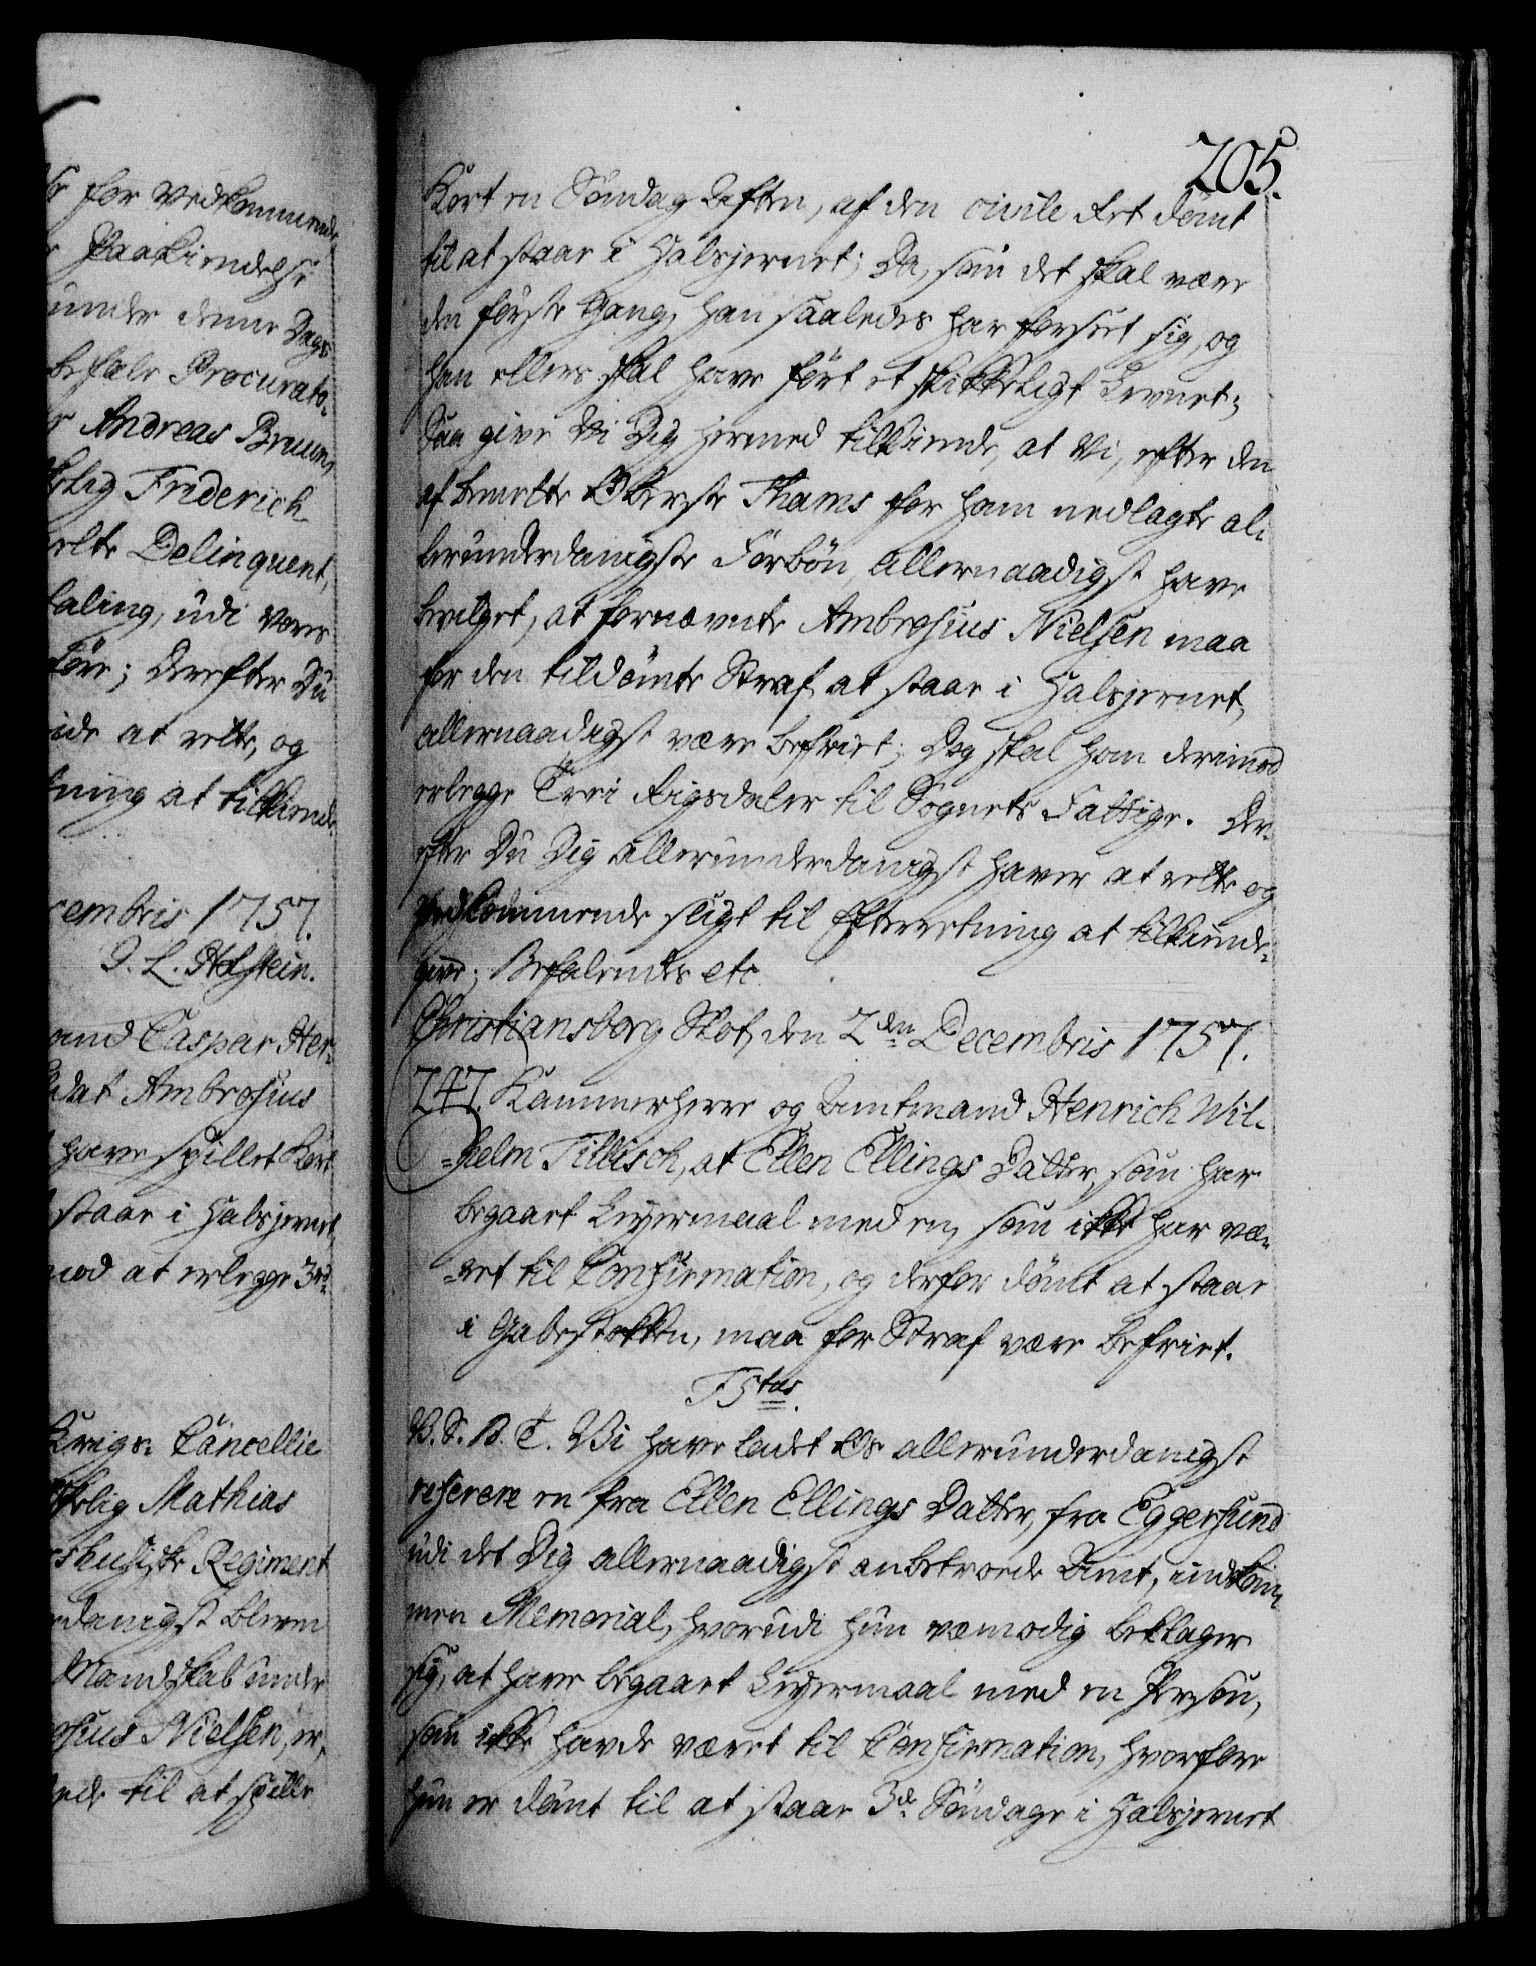 se for Vedkommende
r Paakiendelse
under denne Dags
befale Procurato-
r Andreas Bruun,
kelig Friderich
elte Delinquent,
taling, udi Vores
före; Derefter Du
ide at rette, og
tning at tilkiende
cembris 1757.
J. L. Holstein.
and Caspar Her-
ldat Ambrosius
t have spillet Kort
t staae i Halsjernet,
mod at erlegge 3 rd.
Krigs-Cancellie
kelig Mathias
shusiske Regiment
danigst bleven
Mandskab under
osius Nielsen, er,
ede til at spille
205.
Kort en Söndag Aften, af den civile Ret dömt
til at staae i Halsjernet; Da, som det skal være
den förste Gang, han saaledes har forseet sig, og
han ellers skal have fört et skikkeligt Levnet;
Saa give Vi Dig hermed tilkiende, at Vi, efter den
af bemelte Oberste Thams for ham nedlagte al-
lerunderdanigste Forbön, allernaadigst have
bevilget, at fornævnte Ambrosius Nielsen maa
for den tildömte Straf, at staae i Halsjernet,
allernaadigst være befriet; Dog skal han derimod
erlegge Trei Rigsdaler til Sognets Fattige. Der-
efter Du Dig allerunderdanigst haver at rette og
Vedkommende sligt til Efterretning at tilkiende-
give; Befalendes etc.
Christiansborg Slot, den 2den Decembris 1757.
247. Kammerherre og Amtmand Henrich Wil-
-helm Tillisch, at Ellen Ellings Datter, som har
begaaet Leyermaal med en, som ikke har væ-
-ret til Confirmation, og derfor dömt at staae
i Gabestokken, maa for Straf være befriet.
F5tus.
V. S. B. T. Vi have ladet Os allerunderdanigst
referere en fra Ellen Ellings Datter, fra Eggersund
udi det Dig allernaadigst anbetroede Amt, indkom-
men Memorial, hvorudi hun vemodig beklager
sig, at have begaaet Leyermaal med en Person,
som ikke havde været til Confirmation, hvorfore
hun er dömt til at staae 3de Söndage i Halsjernet